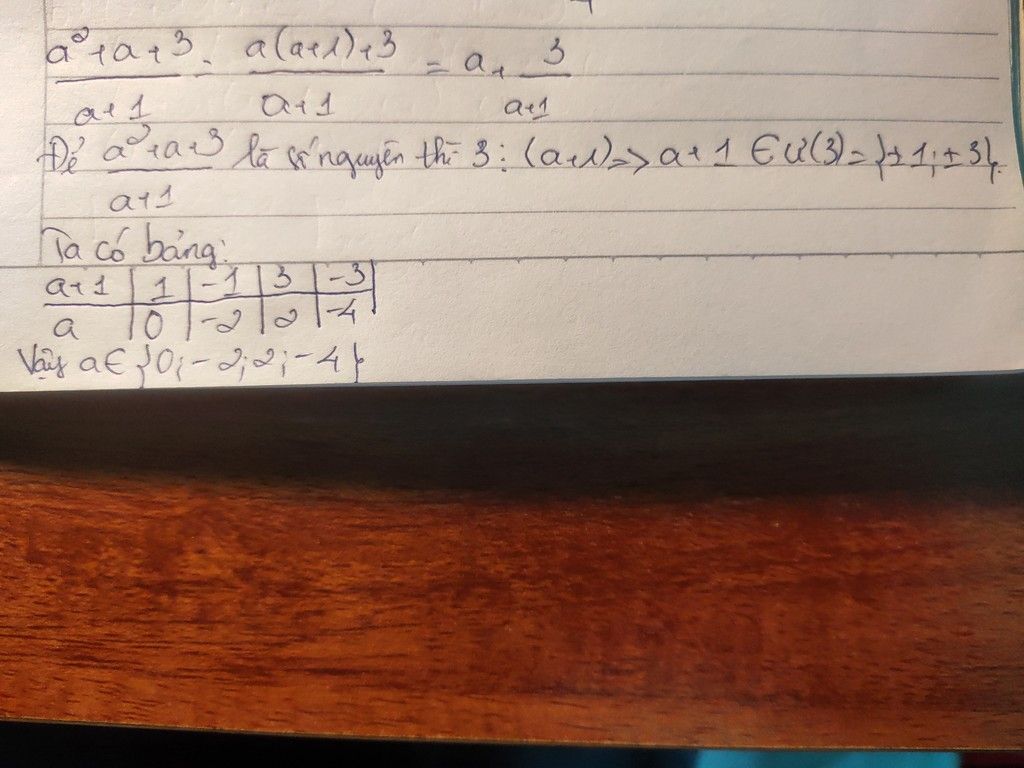 a²+a+3 = a(a+1)+3 = a + 3
a+1 a+1 a+1
Để a²+a+3 là số nguyên thì 3 ⋮ (a+1) => a+1 ∈ Ư(3) = {±1; ±3}.
a+1
Ta có bảng:
a+1 | 1 | -1 | 3 | -3 |
a | 0 | -2 | 2 | -4
Vậy a ∈ {0; -2; 2; -4}